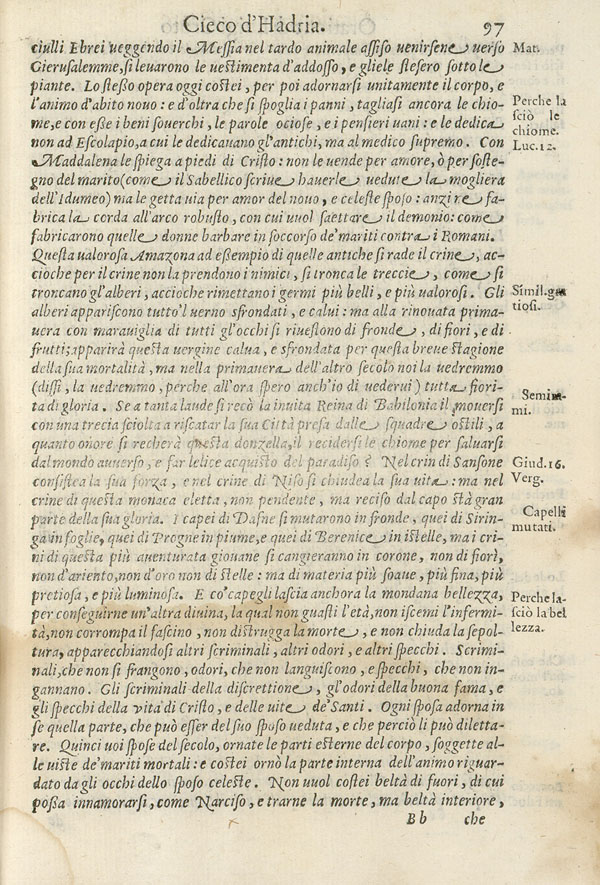 Cieco d'Hadria. 97
ciulli Ebrei ueggendo il Messia nel tardo animale assiso uenirsene uerso
Gierusalemme, si leuarono le uestimenta d'addosso, e gliele stesero sotto le
piante. Lo stesso opera oggi costei, per poi adornarsi unitamente il corpo, e
l'animo d'abito nouo: e d'oltra che si spoglia i panni, tagliasi ancora le chio-
me, e con esse i beni souerchi, le parole ociose, e i pensieri uani: e le dedica
non ad Escolapio, a cui le dedicauano gl'antichi, ma al medico supremo. Con
Maddalena le spiega a piedi di Cristo: non le uende per amore, ò per soste-
gno del marito (come il Sabellico scriue hauerle uedute la mogliera
dell'Idumeo) ma le getta uia per amor del nouo, e celeste sposo: anzi ne fa-
brica la corda all'arco robusto, con cui uuol saettare il demonio: come
fabricarono quelle donne barbare in soccorso de' mariti contra i Romani.
Questa ualorosa Amazona ad essempio di quelle antiche si rade il crine, ac-
cioche per il crine non la prendono i nimici, si tronca le treccie, come si
troncano gl'alberi, accioche rimettano i germi più belli, e più ualorosi. Gli
alberi appariscono tutto'l uerno sfrondati, e calui: ma alla rinouata prima-
uera con marauiglia di tutti gl'occhi si riuestono di fronde, di fiori, e di
frutti; apparirà questa uergine calua, e sfrondata per questa breue stagione
della sua mortalità, ma nella primauera dell'altro secolo noi la uedremmo
(dissi, la uedremmo, perche all'ora spero anch'io di uederui) tutta fiori-
ta di gloria. Se a tanta laude si recò la inuita Reina di Babilonia il mouersi
con una trecia sciolta a riscatar la sua Città presa dalle squadre ostili, a
quanto onore si recherà questa donzella, il recidersi le chiome per saluarsi
dal mondo auuerso, e far felice acquisto del paradiso? Nel crin di Sansone
consisteua la sua forza, e nel crine di Niso si chiudea la sua uita: ma nel
crine di questa monaca eletta, non pendente, ma reciso dal capo stà gran
parte della sua gloria. I capei di Dafne si mutarono in fronde, quei di Sirin-
ga in foglie, quei di Progne in piume, e quei di Berenice in istelle, ma i cri-
ni di questa più auenturata giouane si cangieranno in corone, non di fiori,
non d'ariento, non d'oro non di stelle: ma di materia più soaue, più fina, più
pretiosa, e più luminosa. E co' capegli lascia anchora la mondana bellezza,
per conseguirne un'altra diuina, la qual non guasti l'età, non iscemi l'infermi-
tà, non corrompa il fascino, non distrugga la morte, e non chiuda la sepol-
tura, apparecchiandosi altri scriminali, altri odori, e altri specchi. Scrimi-
nali, che non si frangono, odori, che non languiscono, e specchi, che non in-
gannano. Gli scriminali della discrettione, gl'odori della buona fama, e
gli specchi della uita di Cristo, e delle uite de' Santi. Ogni sposa adorna in
se quella parte, che può esser del suo sposo ueduta, e che perciò li può diletta-
re. Quinci uoi spose del secolo, ornate le parti esterne del corpo, soggette al-
le uiste de' mariti mortali: e costei ornò la parte interna dell'animo riguar-
dato da gli occhi dello sposo celeste. Non uuol costei beltà di fuori, di cui
possa innamorarsi, come Narciso, e trarne la morte, ma beltà interiore,
Bb che
Mat.
Perche la
sciò le
chiome.
Luc. 12.
Simil. gra
tiosi.
Semira-
mi.
Giud. 16.
Verg.
Capelli
mutati.
Perche la-
sciò la bel
lezza.